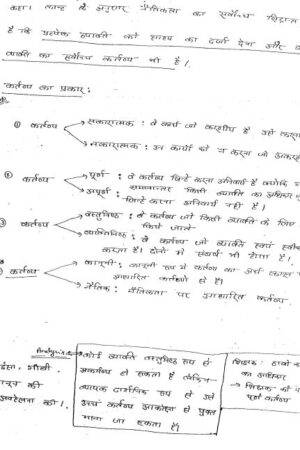 कहा। कान्ट के अनुसार नैतिकता का सर्वोच्च सिद्धान्त
है कि प्रत्येक व्यक्ति को साध्य का दर्जा देना और
व्यक्ति का सर्वोच्च कर्तव्य भी है।
कर्तव्य का प्रकार:
① कर्तव्य
सकारात्मक: वे कार्य जो करणीय है उसे करना
नकारात्मक: उन कार्यों को न करना जो
② कर्तव्य
पूर्ण: वे कर्तव्य जिन्हें करना अनिवार्य है क्योंकि
समानान्तर किसी व्यक्ति का अधिकार
अपूर्ण: जिन्हें करना अनिवार्य नहीं है।
③ कर्तव्य
वस्तुनिष्ठ: वे कर्तव्य जो किसी व्यक्ति के लिए
किये जाने
व्यक्तिनिष्ठ: वे कर्तव्य जो व्यक्ति स्वयं
करता है। दोनों में संघर्ष भी होता है।
कर्तव्य
कानूनी: कानूनी रूप में कर्तव्य का अर्थ
आधारित कार्यों से है।
नैतिक: नैतिकता पर आधारित कर्तव्य
कोई व्यक्ति वस्तुनिष्ठ रूप से
अकर्तव्य हो सकता है लेकिन
व्यापक दार्शनिक रूप से उसे
उच्च कर्तव्य से युक्त
माना जा सकता है।
गांधी
कानून की
अवहेलना की।
शिक्षक:
का अधिकार
शिक्षक की
पूर्ण कर्तव्य